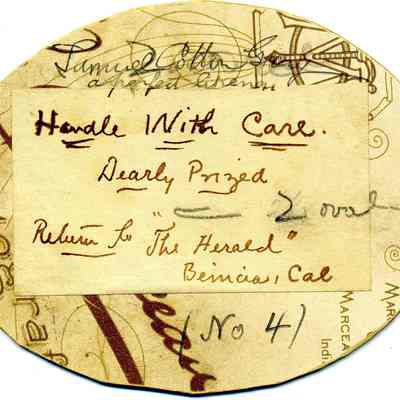 Samuel Cotton
a perfect likeness
Handle With Care.
Dearly Prized
— 2 oval
Return to "The Herald"
Benicia, Cal
(No 4)
MARCEA
Indi
MAR